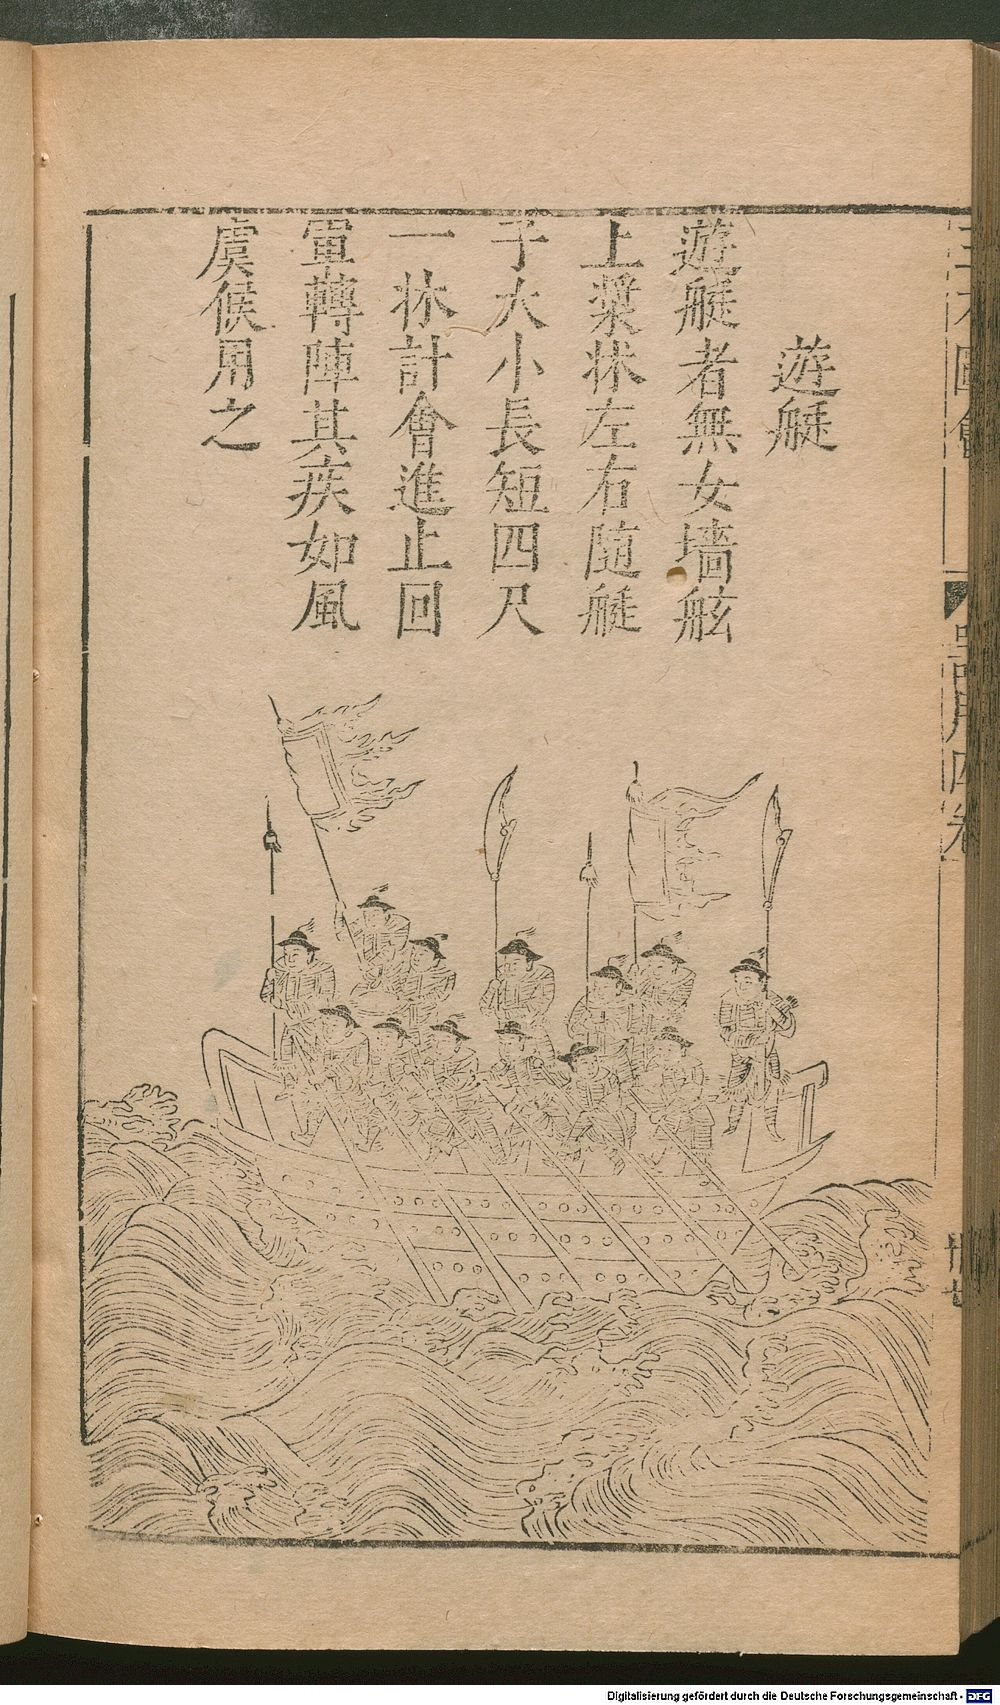 遊艇
遊艇者無女墻舷
上槳牀左右随艇
子大小長短四尺
一牀計會進止回
軍轉陣其疾如風
虞候用之
三才圖會
器用四卷
Digitalisierung gefördert durch die Deutsche Forschungsgemeinschaft - DFG